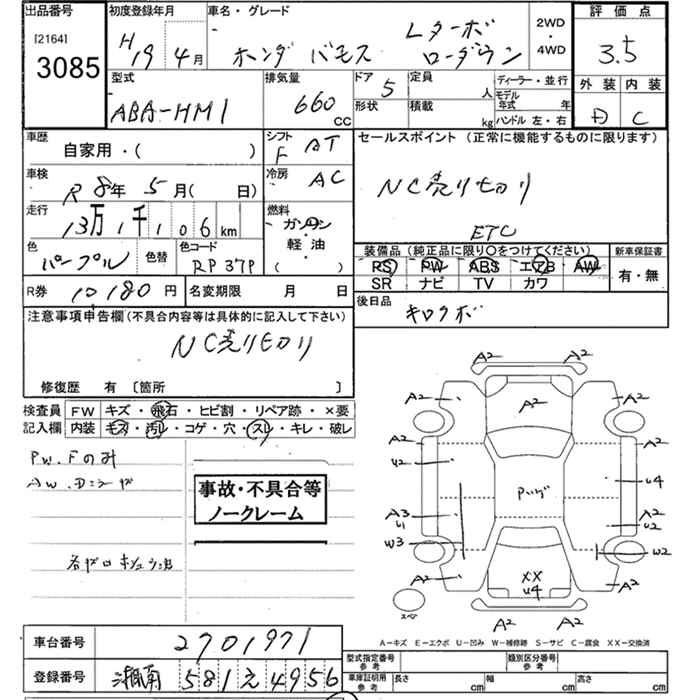 出品番号 初度登録年月 車名・グレード 2WD・4WD 評価点
[2164] 3085 H19年4月 ホンダ バモス Lターボ ローダウン 3.5
型式 排気量 ドア 定員 ディーラー・並行 外装 内装
ABA-HM1 660CC 5 人 モデル年式 年 D C
形状 積載 kg ハンドル 左・右
車歴 シフト セールスポイント(正常に機能するものに限ります)
自家用・( ) F AT
車検 冷房 NC売り切り
R8年5月( 日) AC
走行 燃料
13万1千106km ガソリン・軽油・( ) ETC
色 色替 色コード 装備品(純正品に限り○をつけてください) 新車保証書
パープル RP37P RS PW ABS エアB AW 有・無
SR ナビ TV カワ
R券 10180円 名変期限 月 日 後日品
注意事項申告欄(不具合内容等は具体的に記入して下さい) キロクボ
NC売り切り
修復歴 有 [箇所 ]
検査員 FW キズ・飛石・ヒビ割・リペア跡・×要
記入欄 内装 モス・汚レ・コゲ・穴・スレ・キレ・破レ
PW.Fのみ
事故・不具合等
ノークレーム
A2 A2
A2 A2 A2
A2 A2
U2 U4
Pレグ
A3 U1 A2 U2
W3 W2
A2 XX U4 A2
スペ
A2 A2
A-キズ E-エクボ U-凹み W-補修跡 S-サビ C-腐食 XX-交換済
車台番号 2701971 型式指定番号 参考 類別区分番号 参考
登録番号 湘南 581 え 4956 車庫証明用 参考 長さ cm 幅 cm 高さ cm